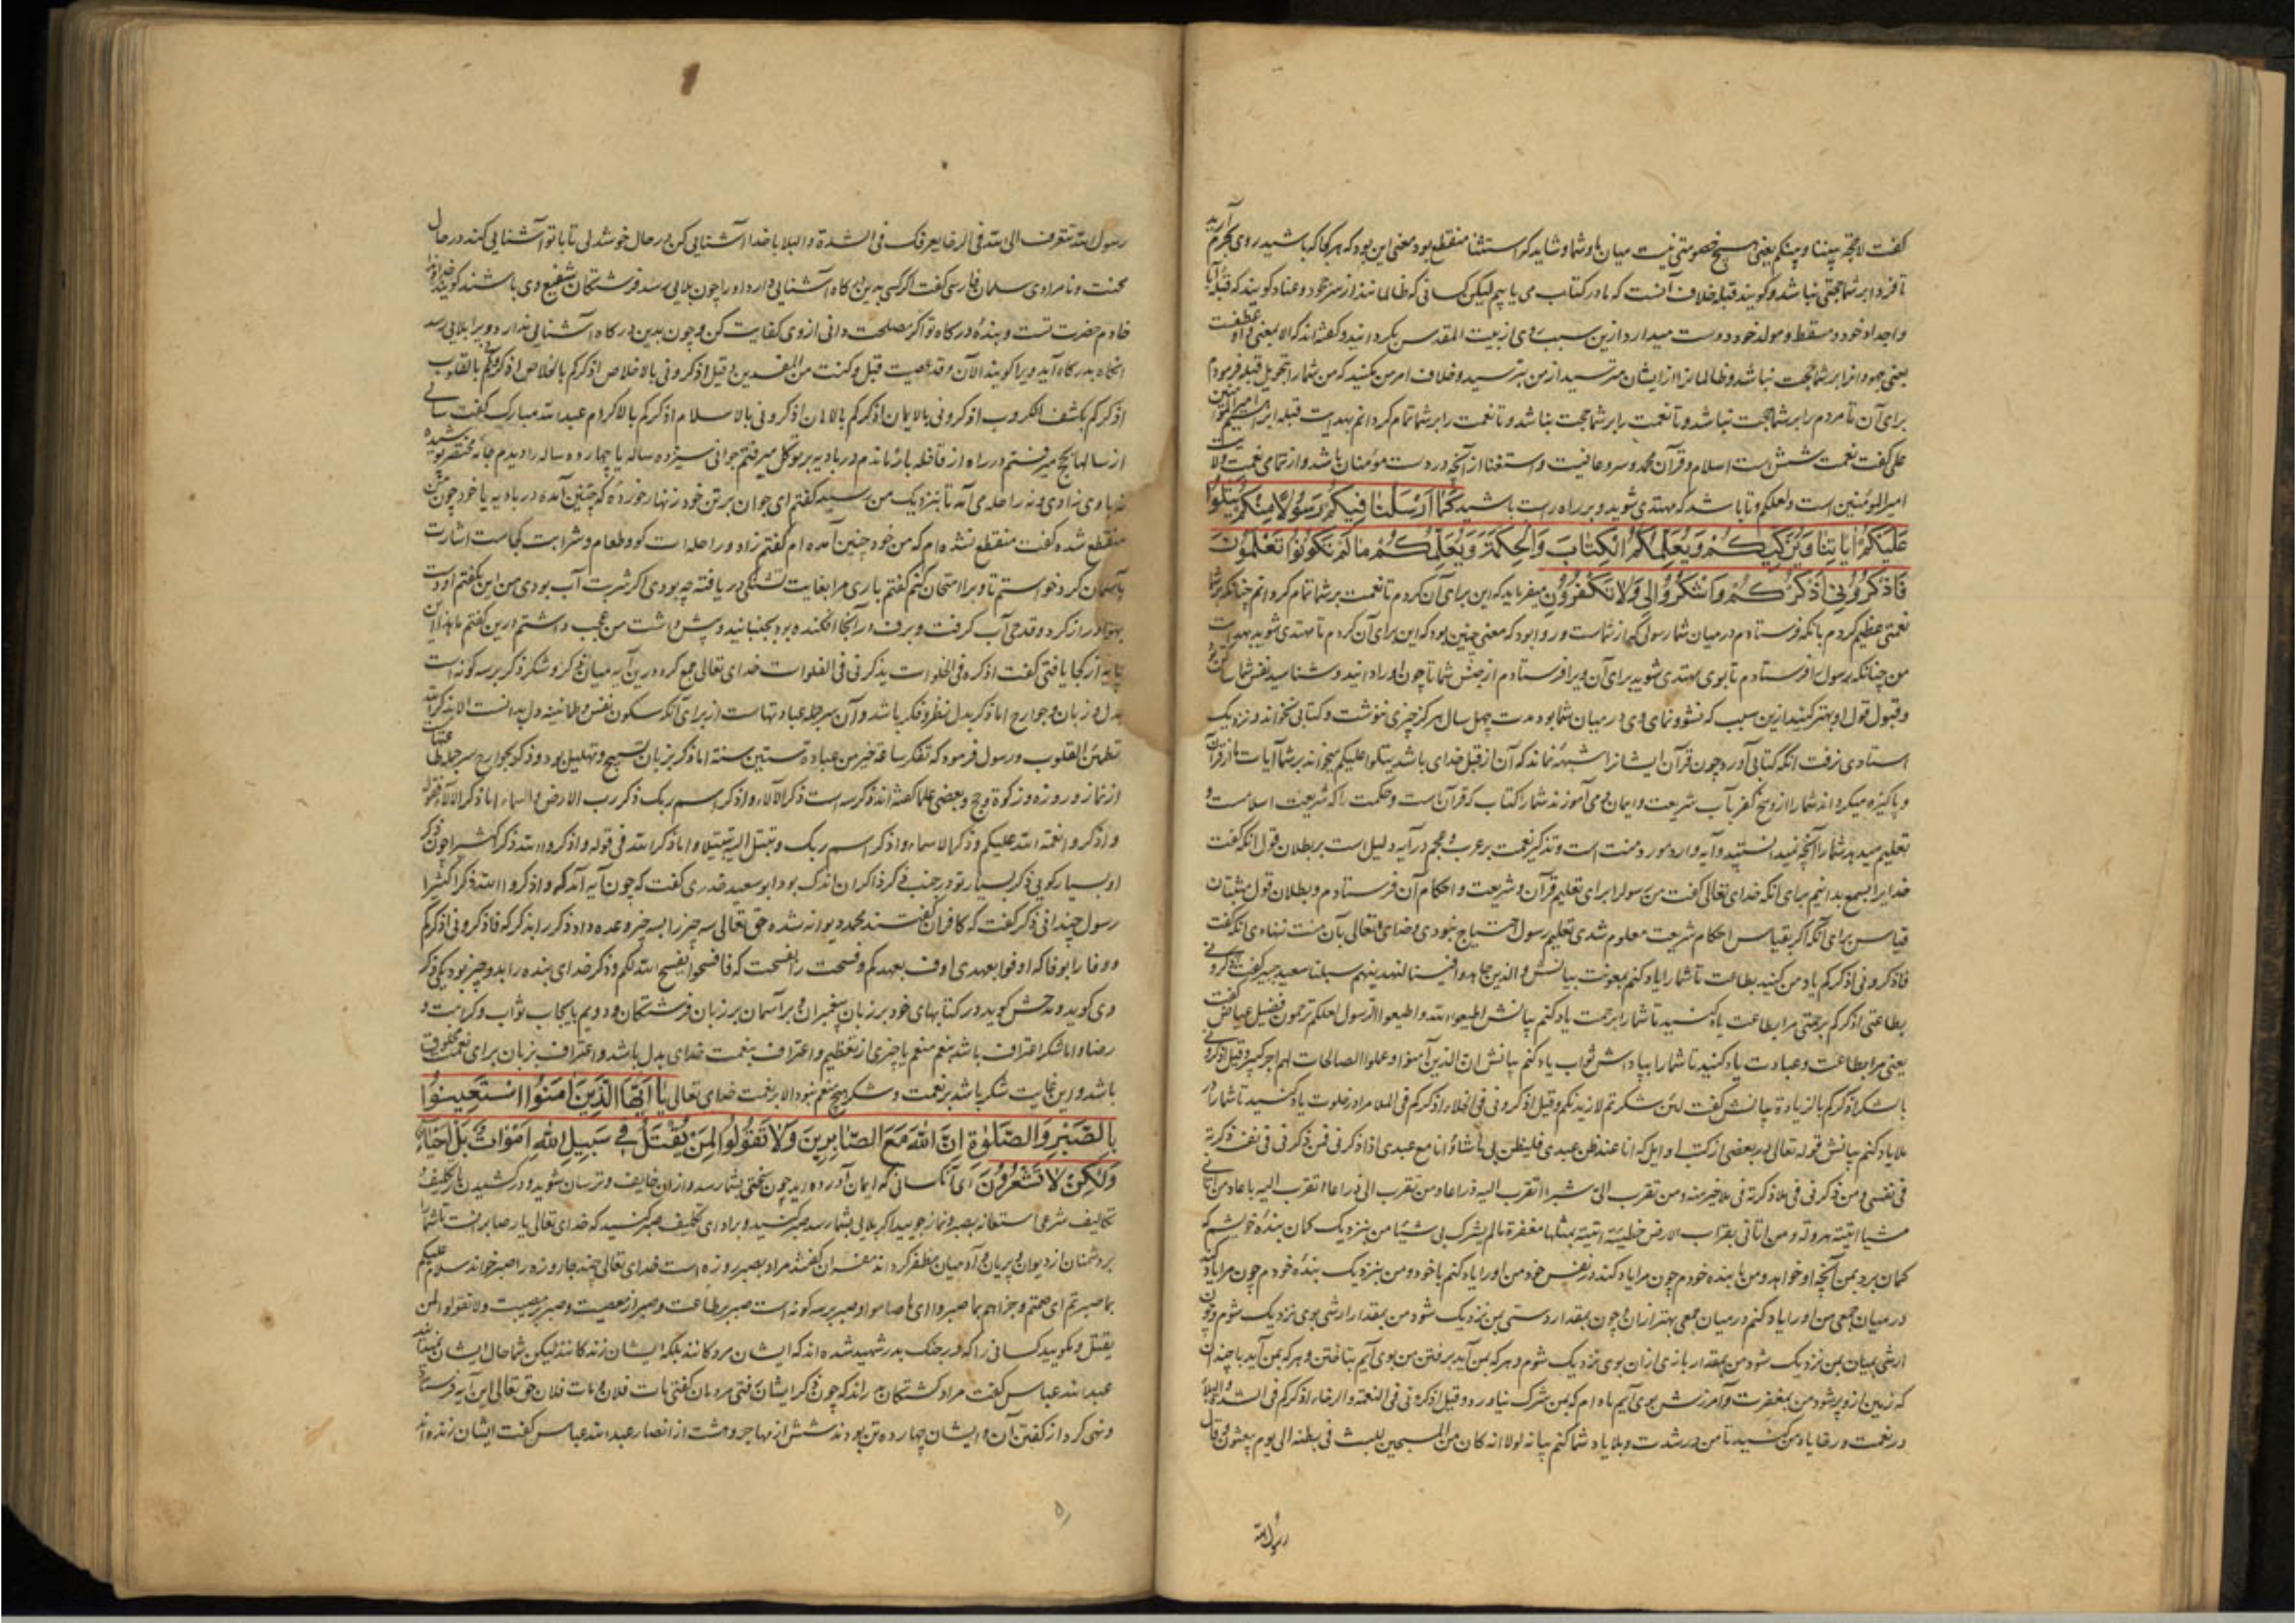 گفت لا حجة بیننا و بینکم یعنی هیچ خصومتی نیست میان ما و شما و شاید که استثنا منقطع بود معنی این بود که هر کجا که باشید روی بحرم آرید
تا فردا بر شما حجتی نباشد و گویند قبله خلاف آنست که ما در کتاب می یابیم لیکن کسانی که ظالمانند از سر جحود و عناد گویند که قبله آبا
و اجداد خود و مسقط و مولد خود دوست میدارد ازین سبب روی از بیت المقدس بگردانید و گفته اند که الا بمعنی واو عطفست
یعنی جهودانرا بر شما حجت نباشد و ظالمانرا از ایشان مترسید از من بترسید و خلاف امر من مکنید که من شما را تحویل قبله فرمودم
برای آن تا مردم را بر شما حجت نباشد و تا نعمت را بر شما حجت نباشد و تا نعمت را بر شما تمام کردانم بهدایت قبله ابرهیم امیر المومنین
علی گفت نعمت شش است اسلام و قرآن و محمد و ستر و عافیت و استغنا از آنچه در دست مؤمنان باشد و از تمامی نعمت ولایت
امیر المومنین است و لعلکم و تا باشد که مهتدی شوید و بر راه راست باشید کَمَا اَرْسَلْنَا فِیکُمْ رَسُولًا مِنْکُمْ یَتْلُوا
عَلَیْکُمْ اٰیَاتِنَا وَیُزَکِّیکُمْ وَیُعَلِّمُکُمُ الْکِتَابَ وَالْحِکْمَةَ وَیُعَلِّمُکُمْ مَا لَمْ تَکُونُوا تَعْلَمُونَ
فَاذْکُرُونِی اَذْکُرْکُمْ وَاشْکُرُوا لِی وَلَا تَکْفُرُونِ میفرماید که این برای آن کردم تا نعمت بر شما تمام کردانم چنانکه بر شما
نعمتی عظیم کردم بانکه فرستادم در میان شما رسولی که از شماست و روا بود که معنی چنین بود که این برای آن کردم تا مهتدی شوید بهدایت
من چنانکه رسول را فرستادم تا بوی مهتدی شوید برای آن ویرا فرستادم از جنس شما تا چون او را دانید و شناسید نفس شما
و قبول قول او بهتر کنید ازین سبب که نشو و نمای وی در میان شما بود مدت چهل سال هرگز چیزی ننوشت و کتابی نخواند و نزدیک
استادی نرفت آنگه کتابی آورد چون قرآن ایشانرا شبهه نماند که آن از قبل خدای باشد یتلوا علیکم میخواند بر شما آیات ما از قرآن
و پاکیزه میکرداند شما را از وسخ کفر بآب شریعت و ایمان و می آموزند شما را کتاب که قرآن است و حکمت را که شریعت اسلامست و
تعلیم میدهد شما را آنچه نمیدانستید و آیه وارد مورد منت است و تذکیر نعمت بر عرب و عجم در آیه دلیل است بر بطلان قول آنکه گفت
خدایرا بسمع بدانیم برای آنکه خدای تعالی گفت من رسولرا برای تعلیم قرآن و شریعت و احکام آن فرستادم و بطلان قول مثبتان
قیاس برای آنکه اگر بقیاس احکام شریعت معلوم شدی بتعلیم رسول احتیاج نبودی و خدای تعالی بآن منت ننهادی آنکه گفت
فاذکرونی اذکرکم یاد من کنید بطاعت تا شما را یاد کنم بمعونت بیانش و الذین جاهدوا فینا لنهدینهم سبلنا سعید جبیر گفت اذکرونی
بطاعتی اذکرکم برحمتی مرا بطاعت یاد کنید تا شما را برحمت یاد کنم بیانش اطیعوا الله و اطیعوا الرسول لعلکم ترحمون فضیل عیاض گفت
یعنی مرا بطاعت و عبادت یاد کنید تا شما را بپاداش ثواب یاد کنم بیانش ان الذین آمنوا و عملوا الصالحات لهم اجر کبیر و قیل اذکرونی
بالشکر اذکرکم بالزیادة بیانش گفت لئن شکرتم لازیدنکم و قیل اذکرونی فی الخلاء اذکرکم فی الملا مرا در خلوت یاد کنید تا شما را در
ملا یاد کنم بیانش قوله تعالی در بعضی از کتب اوایل که انا عند ظن عبدی فلیظن بی ما شاء و انا مع عبدی اذا ذکرنی فمن ذکرنی فی نفسه ذکرته
فی نفسی و من ذکرنی فی ملا ذکرته فی ملا خیر منه و من تقرب الی شبرا اتقرب الیه ذراعا و من تقرب الی ذراعا اتقرب الیه باعا و من اتانی
مشیا اتیته هرولة و من اتانی بقراب الارض خطیئة اتیته بمثلها مغفرة ما لم یشرک بی شیئا من بنزدیک کمان بندهٔ خویشم که
کمان برد بمن آنچه او خواهد و من با بنده خودم چون مرا یاد کند در نفس خود من او را یاد کنم با خود و من بنزدیک بندهٔ خودم چون مرا یاد کند
در میان جمعی من او را یاد کنم در میان جمعی بهتر از آن و چون بمقدار دستی بمن نزدیک شود من بمقدار ارشی بوی نزدیک شوم و چون
ارشی بمیان بمن نزدیک شود من بمقدار بازی از آن بوی نزدیک شوم و هر که بمن آید برفتن من بوی آیم بتاختن و هر که بمن آید با چندان
که زمین از و پر شود من بمغفرت و آمرزش بوی آیم مادام که بمن شرک نیاورد و قیل اذکرونی فی النعمة و الرخاء اذکرکم فی الشدة و البلاء
در نعمت و رخا یاد من کنید تا من در شدت و بلا یاد شما کنم بیانه لولا انه کان من المسبحین للبث فی بطنه الی یوم یبعثون و قال
رسول الله
رسول الله تعرف الی الله فی الرخا یعرفک فی الشدة و البلا با خدا آشنایی کن در حال خوشدلی تا با تو آشنایی کند در حال
محنت و نامرادی سلمان فارسی گفت اگر کسی بدین درگاه آشنایی دارد او را چون بلایی رسد فرشتگان شفیع وی باشند گویند خداوندا
خادم حضرت تست و بندهٔ درگاه تو اگر مصلحت دانی از وی کفایت کن و چون بدین درگاه آشنایی ندارد و ویرا بلایی رسد
آنگاه بدرگاه آید ویرا گویند الآن و قد عصیت قبل و کنت من المفسدین و قیل اذکرونی بالاخلاص اذکرکم بالخلاص اذکرونی بالقلوب
اذکرکم بکشف الکروب اذکرونی بالایمان اذکرکم بالامان اذکرونی بالاسلام اذکرکم بالاکرام عبد الله مبارک گفت سالی
از سالها بحج میرفتم در راه از قافله باز ماندم در بادیه بر توکل میرفتم جوانی سیزده ساله یا چهارده ساله را دیدم جامه مختصر پوشیده
نه با وی زادی و نه راحله می آمد تا بنزدیک من رسید گفتم ای جوان بر تن خود زنهار خوردهٔ که چنین آمده در بادیه یا خود چون من
منقطع شده گفت منقطع نشده ام که من خود چنین آمده ام گفتم زاد و راحله ات کو و طعام و شرابت کجاست اشارت
بآسمان کرد خواستم تا ویرا امتحان کنم گفتم باری مرا بغایت تشنگی دریافته چه بودی اگر شربت آب بودی من این بگفتم او دست
بهوا دراز کرد و قدحی آب گرفت و برف در آنجا افکنده بود بجنبانید و پیش داشت من عجب داشتم درین گفتم
پایه از کجا یافتی گفت اذکره فی الخلوات یذکرنی فی الفلوات خدای تعالی جمع کرد درین آیه میان ذکر و شکر ذکر بر سه گونه است
بدل و زبان و جوارح اما ذکر بدل نظر و فکر باشد و آن سر جمله عبادتهاست از برای آنکه سکون نفس و طمانینه دل بدانست الا بذکر الله
تطمئن القلوب و رسول فرمود که تفکر ساعة خیر من عبادة ستین سنة اما ذکر بزبان تسبیح و تهلیل بود و ذکر بجوارح سر جمله طاعتهاست
از نماز و روزه و زکوة و حج و بعضی علما گفته اند ذکر سه است ذکر الآلاء و اذکر اسم ربک ذکر رب الارض و السماء اما ذکر الآلاء فقوله
و اذکروا نعمة الله علیکم و ذکر الاسماء و اذکر اسم ربک و تبتل الیه تبتیلا و اما ذکر الله فی قوله و اذکروا الله ذکرا کثیرا چون ذکر
او بسیار گویی ذکر بسیار تو در جنب ذکر ذاکران اندک بود ابو سعید خدری گفت که چون آیه آمد که و اذکروا الله ذکرا کثیرا
رسول چندانی ذکر گفت که کافران گفتند محمد دیوانه شده حق تعالی سه چیز را بسه چیز وعده داد ذکر را بذکر که فاذکرونی اذکرکم
و وفا را بوفا که اوفوا بعهدی اوف بعهدکم و فسحت را بفسحت که فافسحوا یفسح الله لکم و ذکر خدای بنده را بدو چیز بود یکی ذکر
وی گوید و مدحش گوید در کتابهای خود بر زبان پیغمبران و بر آسمان بر زبان فرشتگان و دویم بایجاب ثواب و کرامت و
رضا و اما شکر اعتراف باشد بنعم منعم با چیزی از تعظیم و اعتراف بنعمت خدای بدل باشد و اعتراف بزبان برای نعمت مخلوق
باشد و این غایت شکر باشد بر نعمت و شکر هیچ منعم نبود الا بر نعمت خدای تعالی یَا اَیُّهَا الَّذِینَ اٰمَنُوا اسْتَعِینُوا
بِالصَّبْرِ وَالصَّلٰوةِ اِنَّ اللّٰهَ مَعَ الصَّابِرِینَ وَلَا تَقُولُوا لِمَنْ یُقْتَلُ فِی سَبِیلِ اللّٰهِ اَمْوَاتٌ بَلْ اَحْیَاءٌ
وَلٰکِنْ لَا تَشْعُرُونَ ای آنکسانی که ایمان آورده اید چون سختی بشما رسد و از آن خایف و ترسان شوید و در کشیدن بار تکلیف
تکالیف شرعی استعانه بصبر و نماز جویید اگر بلایی بشما رسد صبر کنید و بر ادای تکلیف صبر کنید که خدای تعالی یار صابرانست تا شما را
بر دشمنان از دیوان و پریان و آدمیان مظفر کرداند مفسران گفتند مراد بصبر روزه است خدای تعالی چند جا روزه را صبر خواند سلام علیکم
بما صبرتم ای صمتم و جزاهم بما صبروا ای بما صاموا و صبر بر سه گونه است صبر بر طاعت و صبر از معصیت و صبر بر مصیبت و لا تقولوا لمن
یقتل و مگویید کسانی را که در جنگ بدر شهید شده اند که ایشان مردگانند بلکه ایشان زندگانند لیکن شما حال ایشان نمیدانید
عبد الله عباس گفت مراد کشتگان بدراند که چون ذکر ایشان رفتی مردمان گفتی مات فلان و مات فلان حق تعالی این آیه فرستاد
و نهی کرد از گفتن آن و ایشان چهارده تن بودند شش از مهاجر و هشت از انصار عبد الله عباس گفت ایشان زنده اند